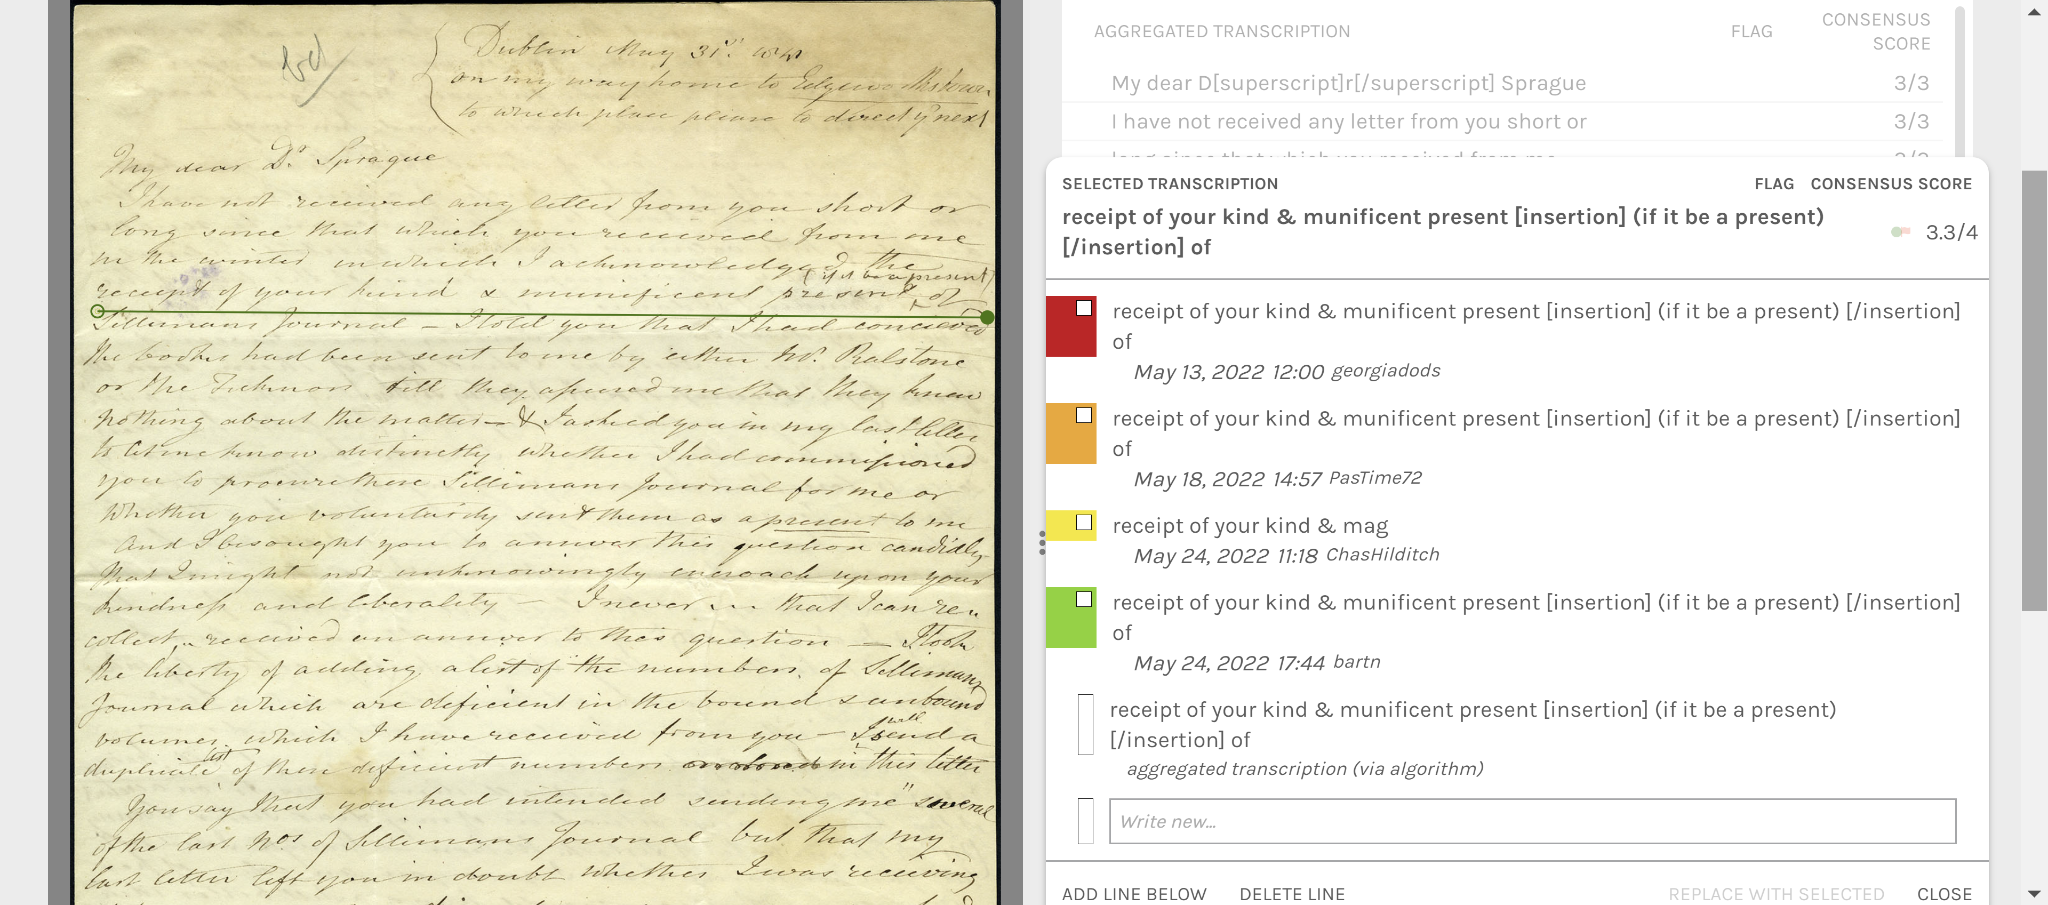 Dublin May 31st 1841
on my way home to Edgeworthstown
to which place please to direct yr next
My dear Dr. Sprague
I have not received any letter from you short or
long since that which you received from me
in the winter in which I acknowledged the
(if it be a present)
receipt of your kind & munificent present of
Sillimans Journal – I told you that I had conceived
the books had been sent to me by either Mr. Ralstone
or the Ticknors till they assured me that they knew
nothing about the matter – & I asked you in my last letter
to let me know distinctly whether I had commissioned
you to procure these Sillimans Journal for me or
whether you voluntarily sent them as a present to me
And I besought you to answer this question candidly
that I might not unknowingly encroach upon your
kindness and liberality – I never that I can re-
collect received an answer to this question – I took
the liberty of adding a list of the numbers of Sillimans
Journal which are deficient in the bound & unbound
will
volumes which I have received from you – I send a
list
duplicate of these deficient numbers in this letter
You say that you had intended sending me "several
of the last Nos of Sillimans Journal but that my
last letter left you in doubt whether I was receiving
AGGREGATED TRANSCRIPTION FLAG CONSENSUS SCORE
My dear D[superscript]r[/superscript] Sprague 3/3
I have not received any letter from you short or 3/3
long since that which you received from me 3/3
SELECTED TRANSCRIPTION FLAG CONSENSUS SCORE
receipt of your kind & munificent present [insertion] (if it be a present)
[/insertion] of 3.3/4
receipt of your kind & munificent present [insertion] (if it be a present) [/insertion]
of
May 13, 2022 12:00 georgiadods
receipt of your kind & munificent present [insertion] (if it be a present) [/insertion]
of
May 18, 2022 14:57 PasTime72
receipt of your kind & mag
May 24, 2022 11:18 ChasHilditch
receipt of your kind & munificent present [insertion] (if it be a present) [/insertion]
of
May 24, 2022 17:44 bartn
receipt of your kind & munificent present [insertion] (if it be a present)
[/insertion] of
aggregated transcription (via algorithm)
Write new...
ADD LINE BELOW DELETE LINE REPLACE WITH SELECTED CLOSE